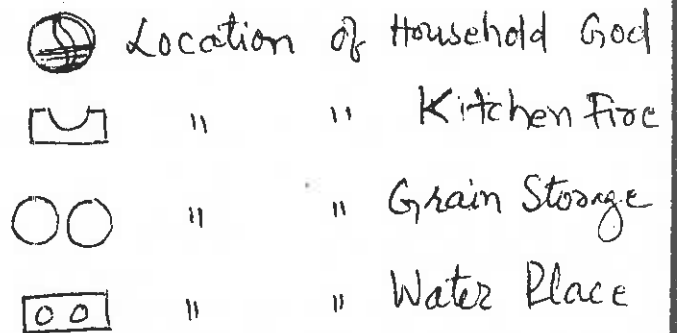 Location of Household God
" " Kitchen Fire
" " Grain Storage
" " Water Place